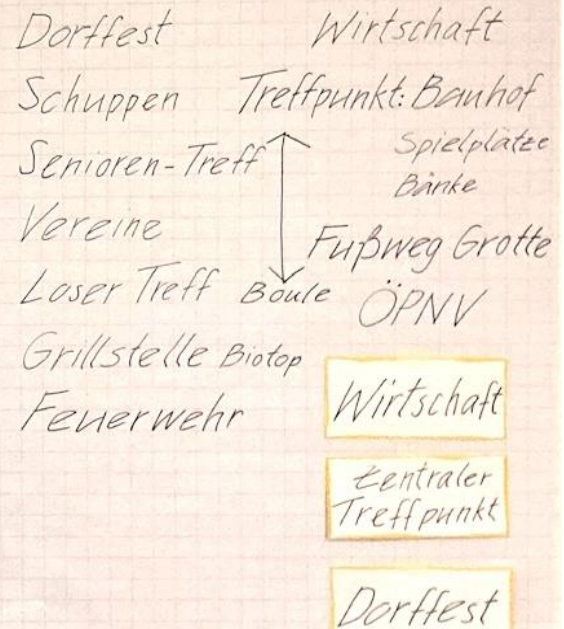 Dorffest
Schuppen
Senioren-Treff
Vereine
Loser Treff
Grillstelle Biotop
Feuerwehr
Wirtschaft
Treffpunkt: Bauhof
Spielplätze
Bänke
Boule
Fußweg Grotte
ÖPNV
Wirtschaft
Zentraler
Treffpunkt
Dorffest